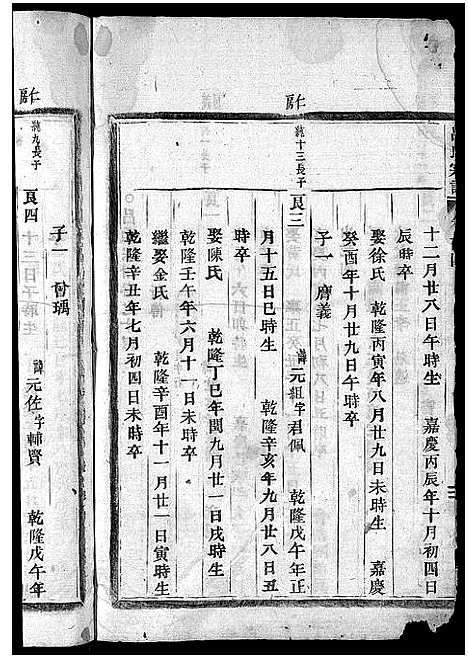 十二月廿八日午時生 嘉慶丙辰年十月初四日
辰時卒
娶徐氏 乾隆丙寅年八月廿九日未時生 嘉慶
癸酉年十月廿九日午時卒
子一 膺義
仁房
純十三長子 良三 諱元組字君佩 乾隆戊午年正
月十五日巳時生 乾隆辛亥年九月廿八日丑
時卒
娶陳氏 乾隆丁巳年閏九月廿一日戌時生
乾隆壬午年六月十一日未時卒
繼娶金氏 乾隆辛酉年十一月廿一日寅時生
乾隆辛丑年七月初四日未時卒
子一 曾瑀
仁房
純九長子 良四 諱元佐字輔賢 乾隆戊午年